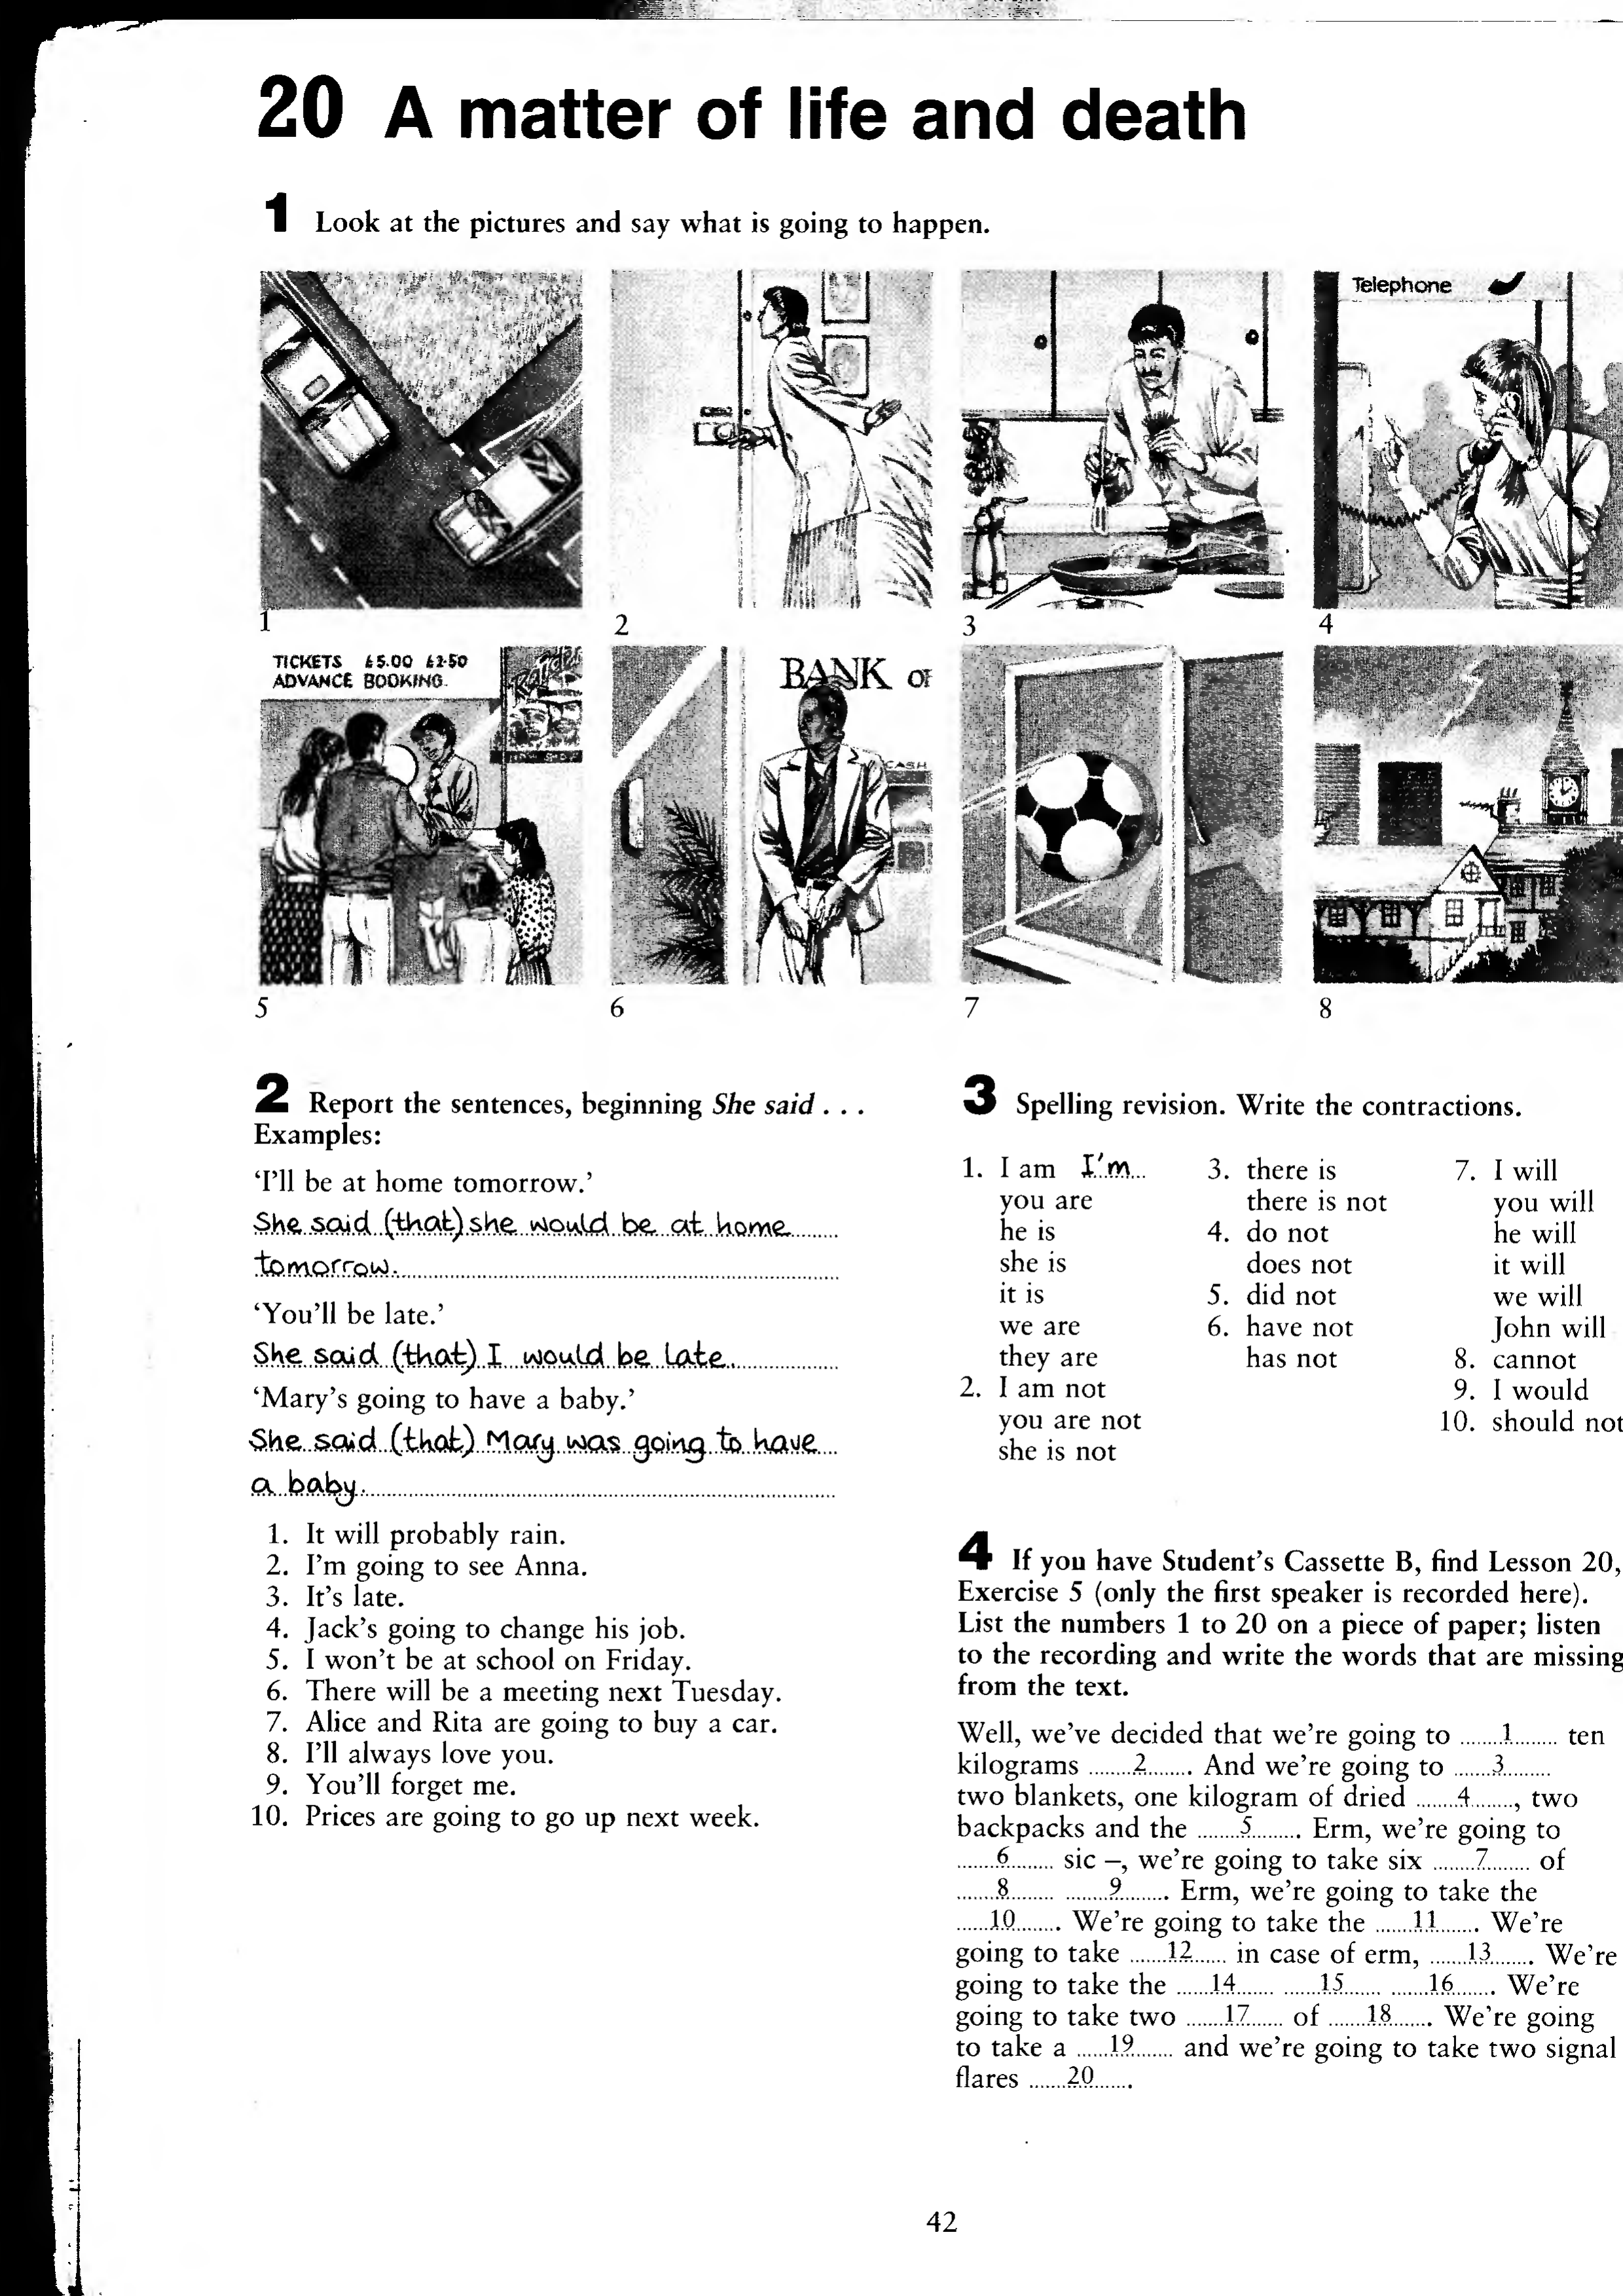 20 A matter of life and death
1 Look at the pictures and say what is going to happen.
Telephone
1
2
3
4
TICKETS £5.00 £2.50
ADVANCE BOOKING.
BANK OF
CASH
5
6
7
8
2 Report the sentences, beginning She said . . .
Examples:
‘I’ll be at home tomorrow.’
She said (that) she would be at home
tomorrow.
‘You’ll be late.’
She said (that) I would be late.
‘Mary’s going to have a baby.’
She said (that) Mary was going to have
a baby.
1. It will probably rain.
2. I’m going to see Anna.
3. It’s late.
4. Jack’s going to change his job.
5. I won’t be at school on Friday.
6. There will be a meeting next Tuesday.
7. Alice and Rita are going to buy a car.
8. I’ll always love you.
9. You’ll forget me.
10. Prices are going to go up next week.
3 Spelling revision. Write the contractions.
1. I am I’m
you are
he is
she is
it is
we are
they are
2. I am not
you are not
she is not
3. there is
there is not
4. do not
does not
5. did not
6. have not
has not
7. I will
you will
he will
it will
we will
John will
8. cannot
9. I would
10. should not
4 If you have Student’s Cassette B, find Lesson 20,
Exercise 5 (only the first speaker is recorded here).
List the numbers 1 to 20 on a piece of paper; listen
to the recording and write the words that are missing
from the text.
Well, we’ve decided that we’re going to ......1...... ten
kilograms ......2....... And we’re going to ......3......
two blankets, one kilogram of dried ......4......, two
backpacks and the ......5....... Erm, we’re going to
......6...... sic –, we’re going to take six ......7...... of
......8...... ......9....... Erm, we’re going to take the
......10....... We’re going to take the ......11....... We’re
going to take ......12...... in case of erm, ......13....... We’re
going to take the ......14...... ......15...... ......16....... We’re
going to take two ......17...... of ......18....... We’re going
to take a ......19...... and we’re going to take two signal
flares ......20.......
42